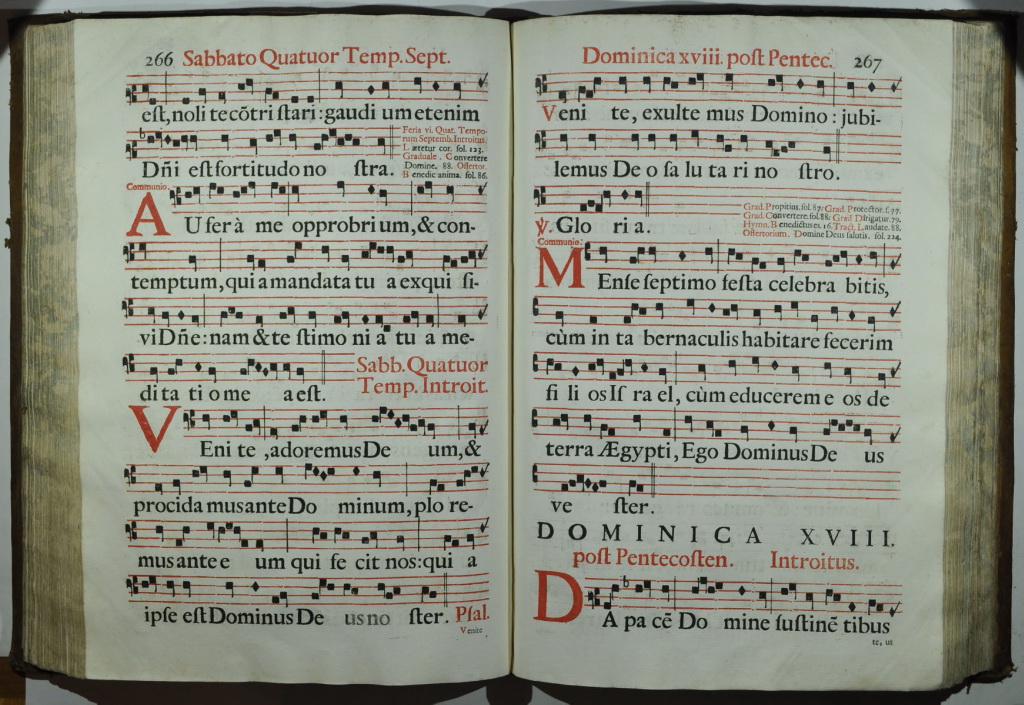 266 Sabbato Quatuor Temp. Sept.
est, noli te cõtri stari: gaudi um etenim
Feria vi. Quat. Tempo-
rum Septemb. Introitus.
Lætetur cor. fol. 123.
Graduale. Convertere
Domine. 88. Offertor.
Benedic anima. fol. 86.
Dñi est fortitudo no stra.
Communio.
AUferà me opprobrium, & con-
temptum, quia mandata tu a exqui si-
vi Dñe: nam & te stimo ni a tu a me-
dita ti o me a est.
Sabb. Quatuor
Temp. Introit.
VEni te, adoremus De um, &
procida mus ante Do minum, plo re-
mus ante e um qui fe cit nos: qui a
ipse est Dominus De us no ster. Psal.
Venite
Dominica xviii. post Pentec. 267
Veni te, exulte mus Domino: jubi-
lemus De o sa lu ta ri no stro.
Grad. Propitius. fol. 87. Grad. Protector. f. 77.
Grad. Convertere. fol. 88. Grad Dirigatur. 79.
Hymn. Benedictus es. 16. Tract. Laudate. 88.
Offertorium. Domine Deus salutis. fol. 224.
℣. Glo ri a.
Communio.
MEnse septimo festa celebra bitis,
cùm in ta bernaculis habitare fecerim
fi li os Is ra el, cùm educerem e os de
terra Ægypti, Ego Dominus De us
ve ster.
DOMINICA XVIII.
post Pentecosten. Introitus.
DA pa cē Do mine sustinē tibus
te, ut